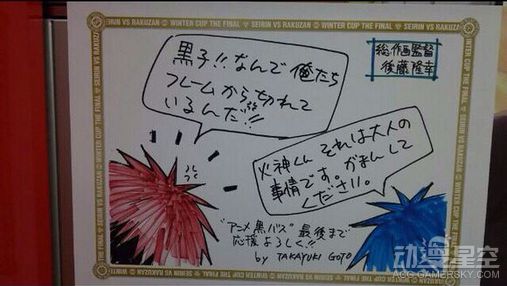 SEIRIN VS RAKUZAN ◎ WINTER CUP THE FINAL ◎ SEIRIN VS RAKUZAN ◎ WINTER CUP THE FINAL ◎ SEIRIN VS RAKUZAN
総作画監督
後藤隆幸
黒子!!なんで俺たち
フレームから切れて
いるんだ!!
火神くん それは大人の
事情です。がまんして
ください。
"アニメ黒バス"最後まで
応援よろしく!!
by TAKAYUKI GOTO
动漫星空
ACG.GAMERSKY.COM